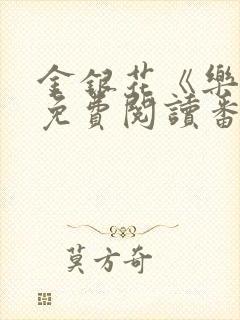 金銀花《樂
免費閱讀番
莫方奇